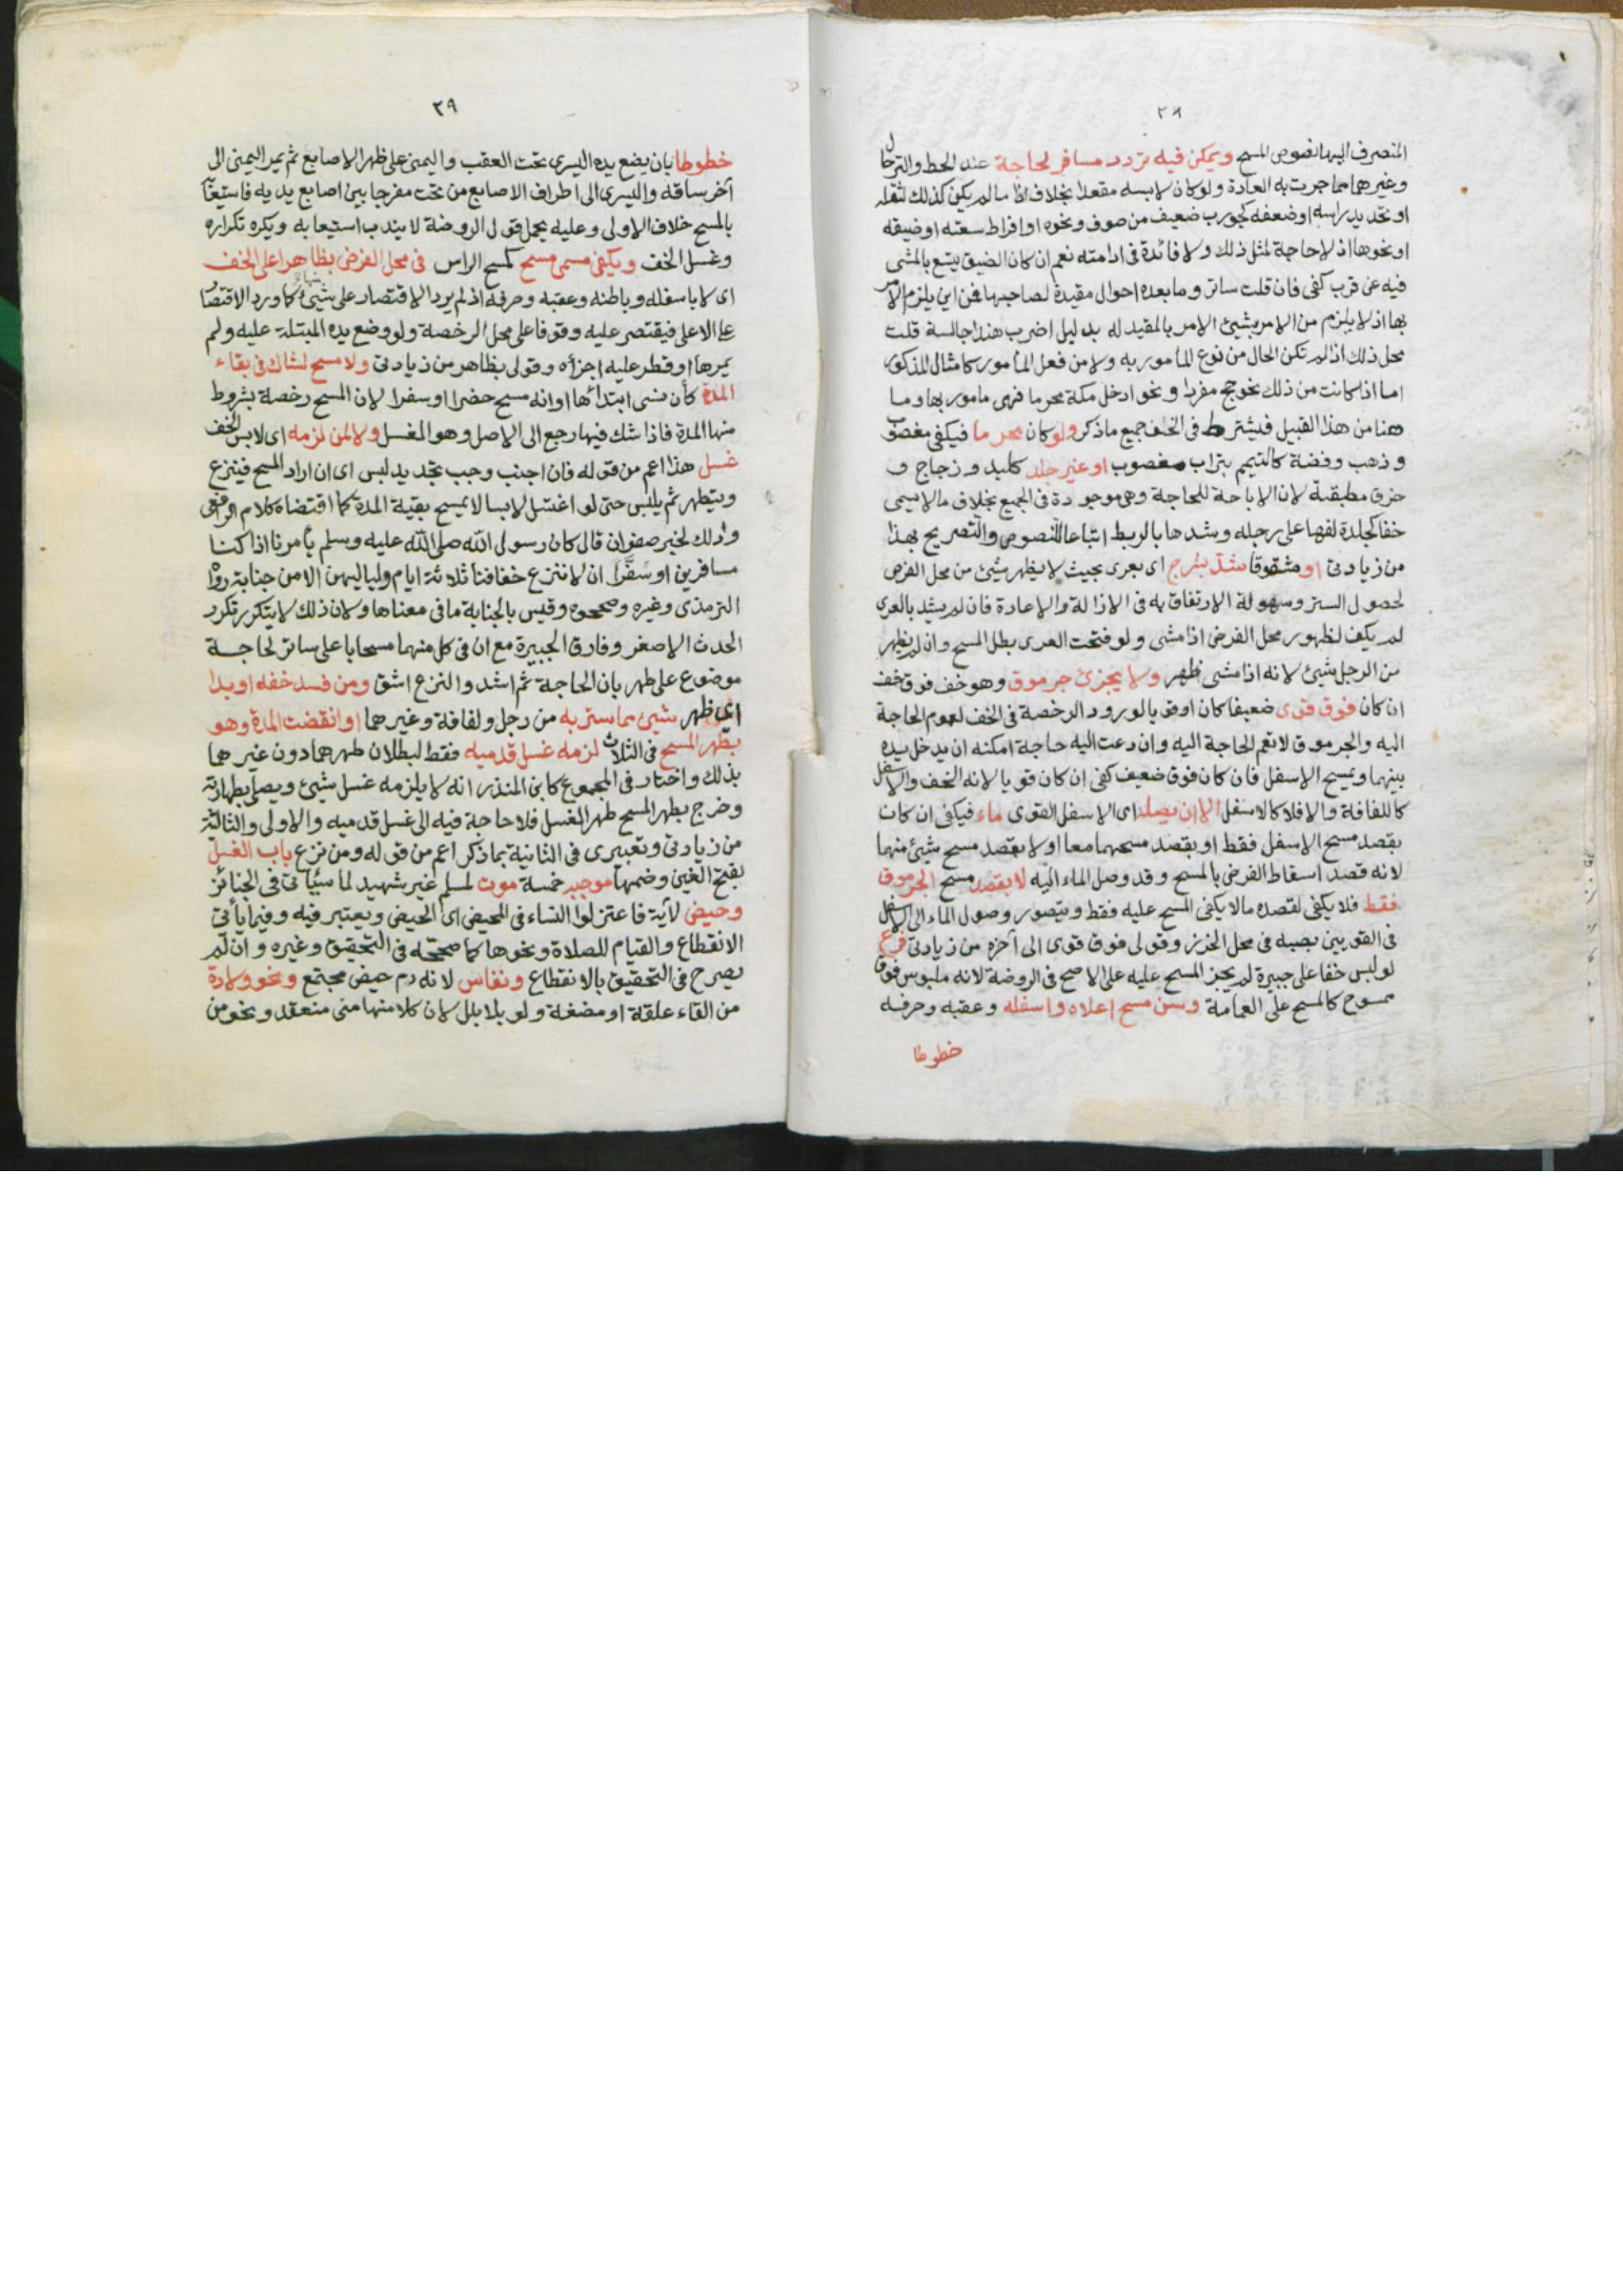 ٢٨
المنصرف اليها نصوص المسح ويمكن فيه تردد مسافر لحاجة عند الحط والترحال
وغيرهما مما جرت به العادة ولو كان لابسه مقعدا بخلاف ما لم يكن كذلك لثقله
او تحديد راسه او ضعفه كجورب ضعيف من صوف ونحوه او افراط سعته او ضيقه
او نحوها اذ لا حاجة لمثل ذلك ولا فائدة في ادامته نعم ان كان الضيق يتسع بالمشي
فيه عن قرب كفى فان قلت ساتر وما بعده احوال مقيدة لصاحبها فمن اين يلزم الامر
بها اذ لا يلزم من الامر بشيئ الامر بالمقيد له بدليل اضرب هندا جالسة قلت
محل ذلك اذا لم تكن الحال من نوع المأمور به ولا من فعل المأمور كامثال المذكور
اما اذا كانت من ذلك نحو حج مفردا ونحو ادخل مكة محرما فهي مامور بها وما
هنا من هذا القبيل فيشترط في الخف جميع ما ذكر ولو كان محرما فيكفي مغصوب
وذهب وفضة كالتيمم بتراب مغصوب او غير جلد كلبد وزجاج و
خرق مطبقة لان الاباحة للحاجة وهي موجودة في الجميع بخلاف ما لا يسمى
خفا كجلدة لفها على رجله وشدها بالربط اتباعا للنصوص والتصريح بهذا
من زيادتي او مشقوقا شد بشرج اى بعرى بحيث لا يظهر شيئ من محل الفرض
لحصول الستر وسهولة الارتفاق به في الازالة والاعادة فان لم يشد بالعرى
لم يكف لظهور محل الفرض اذا مشى ولو فتحت العرى بطل المسح وان لم يظهر
من الرجل شيئ لانه اذا مشى ظهر ولا يجزئ جرموق وهو خف فوق خف
ان كان فوق قوى ضعيفا كان او قويا لورود الرخصة في الخف لعموم الحاجة
اليه والجرموق لا تعم الحاجة اليه وان دعت اليه حاجة امكنه ان يدخل يده
بينهما ويمسح الاسفل فان كان فوق ضعيف كفى ان كان قويا لانه الخف والاسفل
كاللفافة والا فلا كالاسفل الا ان يصله اى الاسفل القوى ماء فيكفي ان كان
بقصد مسح الاسفل فقط او بقصد مسحهما معا او لا بقصد مسح شيئ منهما
لانه قصد اسقاط الفرض بالمسح وقد وصل الماء اليه لا بقصد مسح الجرموق
فقط فلا يكفي لقصده ما لا يكفي المسح عليه فقط ويتصور وصول الماء الى الاسفل
في القويين بصبه في محل الخرز وقولي فوق قوى الى آخره من زيادتي فرع
لو لبس خفا على جبيرة لم يجز المسح عليه على الاصح في الروضة لانه ملبوس فوق
ممسوح كالمسح على العمامة وسن مسح اعلاه واسفله وعقبه وحرفه
خطوطا
٢٩
خطوطا بان يضع يده اليسرى تحت العقب واليمنى على ظهر الاصابع ثم يمر اليمنى الى
آخر ساقه واليسرى الى اطراف الاصابع من تحت مفرجا بين اصابع يديه فاستيعابه
بالمسح خلاف الاولى وعليه يحمل قول الروضة لا يندب استيعابه ويكره تكراره
وغسل الخف ويكفي مسمى مسح كمسح الراس في محل الفرض بظاهر اعلى الخف
اى لا باسفله وباطنه وعقبه وحرفه اذ لم يرد الاقتصار على شيئ منها كما ورد الاقتصار
على الاعلى فيقتصر عليه وقوفا على محل الرخصة ولو وضع يده المبتلة عليه ولم
يمرها او قطر عليه اجزأه وقولي بظاهر من زيادتي ولا مسح لشاك في بقاء
المدة كأن نسى ابتدائها او انه مسح حضرا او سفرا لان المسح رخصة بشروط
منها المدة فاذا شك فيها رجع الى الاصل وهو الغسل ولا لمن لزمه اى لابس الخف
غسل هذا اعم من قوله فان اجنب وجب تجديد لبس اى ان اراد المسح فينزع
ويتطهر ثم يلبس حتى لو اغتسل لابسا لا يمسح بقية المدة كما اقتضاه كلام الرافعي
وذلك لخبر صفوان قال كان رسول الله صلى الله عليه وسلم يأمرنا اذا كنا
مسافرين او سفرا ان لا ننزع خفافنا ثلاثة ايام ولياليهن الا من جنابة رواه
الترمذى وغيره وصححوه وقيس بالجنابة ما في معناها ولان ذلك لا يتكرر تكرر
الحدث الاصغر وفارق الجبيرة مع ان في كل منهما مسحا باعلى ساتر لحاجة
موضوع على طهر بان الحاجة ثم اشد والنزع اشق ومن فسد خفه او بدا
اى ظهر شيئ مما ستر به من رجل ولفافة وغيرهما او انقضت المدة وهو
بطهر المسح في الثلاث لزمه غسل قدميه فقط لبطلان طهرهما دون غيرهما
بذلك واختار في المجموع كابن المنذر انه لا يلزمه غسل شيئ ويصلي بطهارته
وخرج بطهر المسح طهر الغسل فلا حاجة فيه الى غسل قدميه والاولى والثالثة
من زيادتي وتعبيرى في الثانية بما ذكر اعم من قوله ومن نزع باب الغسل
بفتح الغين وضمها موجبه خمسة موت لمسلم غير شهيد لما سيأتي في الجنائز
وحيض لآية فاعتزلوا النساء في المحيض اى الحيض ويعتبر فيه وفيما يأتي
الانقطاع والقيام للصلاة ونحوها كما صححه في التحقيق وغيره وان لم
يصرح في التحقيق بالانقطاع ونفاس لانه دم حيض مجتمع ونحو ولادة
من القاء علقة او مضغة ولو بلا بلل لان كلا منهما مني منعقد ونحو من